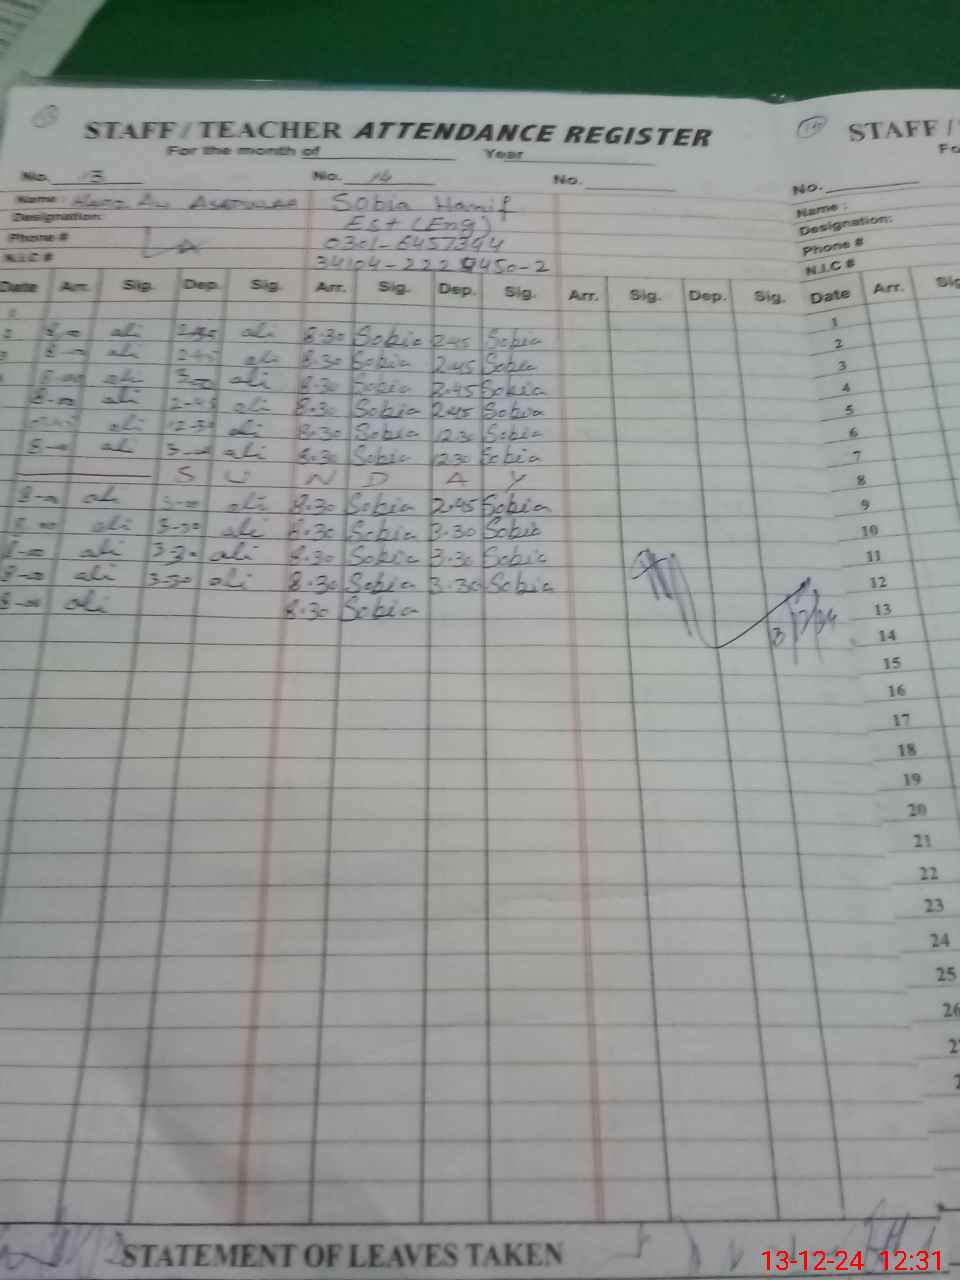 STAFF / TEACHER ATTENDANCE REGISTER
For the month of Year
No. 13 No. 14 No.
Name: Sobia Hanif
Designation: Est (Eng)
Phone # 0301-6457394
N.I.C # 34104-2229450-2
Date Arr. Sig. Dep. Sig. Arr. Sig. Dep. Sig. Arr. Sig. Dep. Sig.
1
2 8-00 ali 2-45 ali 8.30 Sobia 2.45 Sobia
3 8-00 ali 2-45 ali 8.30 Sobia 2.45 Sobia
8-00 ali 3-00 ali 8.30 Sobia 2.45 Sobia
8-00 ali 2-45 ali 8.30 Sobia 2.45 Sobia
ali 12-30 ali 8.30 Sobia 12.30 Sobia
8-00 ali 3-00 ali 8.30 Sobia 12.30 Sobia
S U N D A Y
8-00 ali 3-00 ali 8.30 Sobia 2.45 Sobia
8-00 ali 3-30 ali 8.30 Sobia 3.30 Sobia
8-00 ali 3-30 ali 8.30 Sobia 3.30 Sobia
8-00 ali 3-30 ali 8.30 Sobia 3.30 Sobia
8-00 ali 8.30 Sobia
STATEMENT OF LEAVES TAKEN
STAFF /
No.
Name:
Designation:
Phone #
N.I.C #
Date Arr.
1
2
3
4
5
6
7
8
9
10
11
12
13
14
15
16
17
18
19
20
21
22
23
24
25
26
13-12-24 12:31